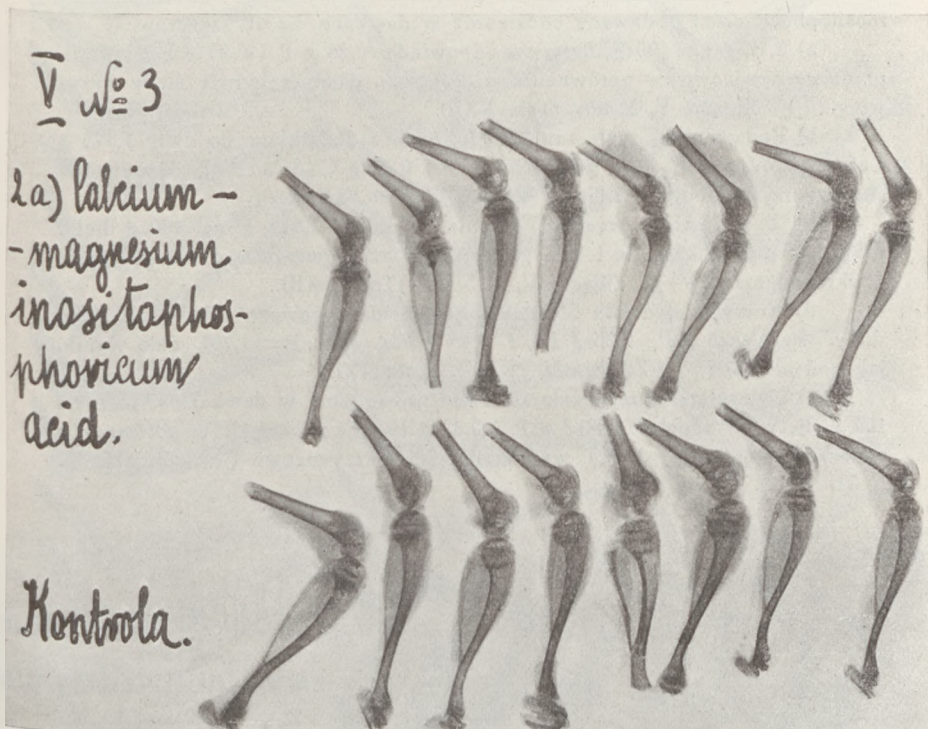 V № 3
2a) Calcium -
- magnesium
inositophos-
phoricum
acid.
Kontrola.